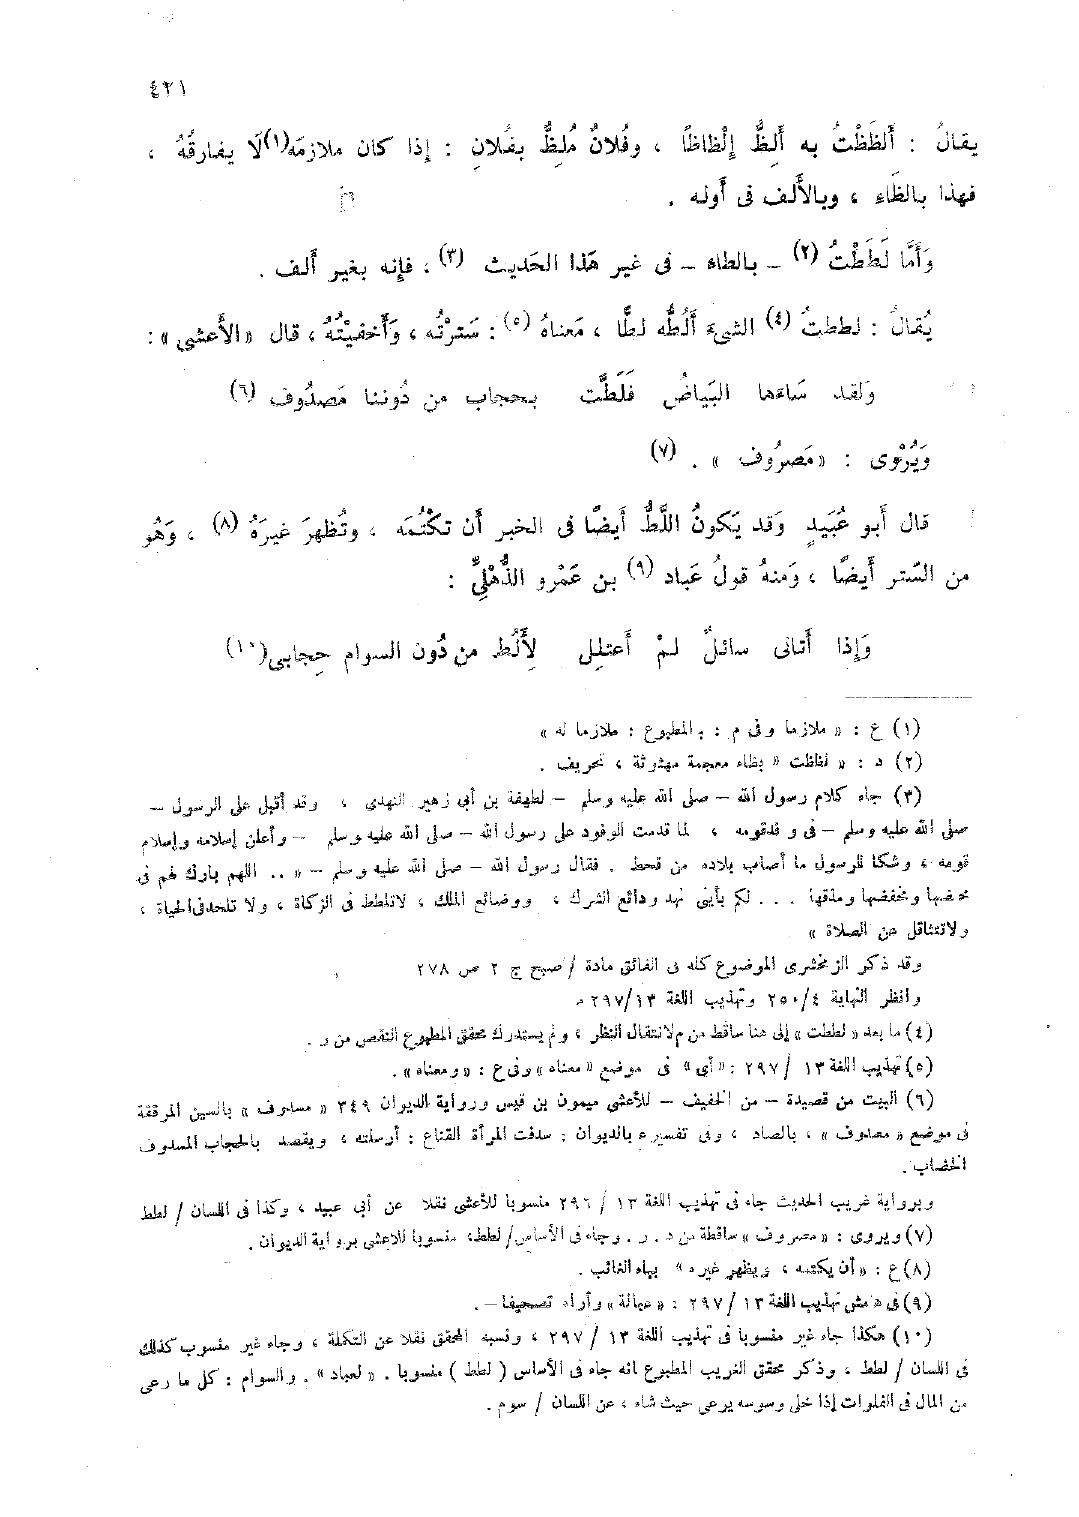 ٤٢١
يقالُ : أَلظَظْتُ به أُلِظُّ إِلْظاظًا ، وفُلانٌ مُلِظٌّ بفُلانٍ : إذا كان ملازمَه(١)لَا يفارقُهُ ،
فهذا بالظَاء ، وبالأَلف فى أَوله .
وَأَمَّا لَطَطْتُ (٢) ــ بالطاء ــ فى غير هَذا الحَديث (٣) ، فإِنه بغير أَلف .
يُقالُ : لططتُ (٤) الشىءَ أَلُطُّه لطًّا ، مَعناهُ (٥) : سَترْتُه ، وَأَخفيْتُهُ ، قال «الأَعشى» :
وَلقد سَاءَها البَياضُ فَلَطَّت بحجاب من دُوننا مَصدُوف (٦)
وَيُرْوى : «مَصرُوف » . (٧)
قال أَبو عُبَيدٍ وَقد يَكونُ اللَّطُّ أَيضًا فى الخبر أَن تكْتُمَه ، وتُظهرَ غيرَهُ (٨) ، وَهُو
من السَّتر أَيضًا ، وَمنهُ قولُ عَباد (٩) بن عَمْرو الذُّهْلِىِّ :
وَإِذا أَتانى سائلٌ لمْ أَعتلِل لِأَلُط من دُون السوام حِجابى(١٠)
(١) ع : « ملازما وفى م : بالمطبوع : ملازما له »
(٢) د : « لظاظت » بظاء معجمة مهثوثة ، تحريف .
(٣) جاء كلام رسول الله – صلى الله عليه وسلم – لطهفة بن أبى زهير النهدى ، وقد أقبل على الرسول –
صلى الله عليه وسلم – فى وفدقومه ، لما قدمت الوفود على رسول الله – صلى الله عليه وسلم – وأعلن إسلامه وإسلام
قومه ، وشكا للرسول ما أصاب بلاده من قحط . فقال رسول الله – صلى الله عليه وسلم – « .. اللهم بارك لهم فى
محضها ومخضها ومذقها ... لكم يابنى نهد ودائع الشرك ، ووضائع الملك ، لاتلطط فى الزكاة ، ولا تلحدفى الحياة ،
ولاتتثاقل عن الصلاة »
وقد ذكر الزمخشرى الموضوع كله فى الفائق مادة / صبح ج ٢ ص ٢٧٨
وانظر النهاية ٢٥٠/٤ وتهذيب اللغة ٢٩٧/١٣ .
(٤) ما بعد « لططت » إلى هنا ساقط من م لانتقال النظر ، ولم يستدرك محقق المطبوع النقص من ر .
(٥) تهذيب اللغة ١٣ / ٢٩٧ : « أى » فى موضع « معناه » وفى ع : « ومعناه » .
(٦) البيت من قصيدة – من الخفيف – للأعشى ميمون بن قيس ورواية الديوان ٣٤٩ « مسدوف » بالسين المرققة
فى موضع « مصدوف » ، بالصاد ، وفى تفسيره بالديوان : سدفت المرأة القناع : أرسلته ، ويقصد بالحجاب المسدوف
الخضاب .
وبرواية غريب الحديث جاء فى تهذيب اللغة ١٣ / ٢٩٦ منسوبا للأعشى نقلا عن أبى عبيد ، وكذا فى اللسان / لطط
(٧) ويروى : « مصروف » ساقطة من د . ر . وجاء فى الأساس/ لطط، منسوبا للأعشى برواية الديوان .
(٨) ع : « أن يكتمه ، ويظهر غيره » بياء الغائب .
(٩) فى « متن تهذيب اللغة ١٣ / ٢٩٧ : « عبالة » وأراه تصحيفا – .
(١٠) هكذا جاء غير منسوبا فى تهذيب اللغة ١٣ / ٢٩٧ ، ونسبه المحقق نقلا عن التكملة ، وجاء غير منسوب كذلك
فى اللسان / لطط ، وذكر محقق الغريب المطبوع انه جاء فى الأساس ( لطط ) منسوبا . « لعباد » . والسوام : كل ما رعى
من المال فى الفلوات إذا خلى وسومه يرعى حيث شاء ، عن اللسان / سوم .